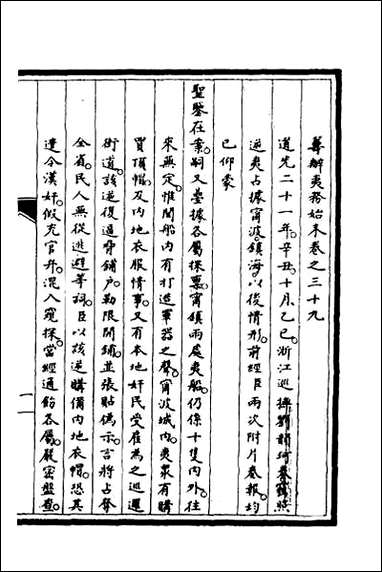 籌辦夷務始末卷之三十九
道光二十一年辛丑十月乙巳浙江巡撫劉韻珂奏竊照
逆夷占據甯波鎮海以後情形前經臣兩次附片奏報均
已仰蒙
聖鑒在案嗣又疊據各屬探稟甯鎮兩處夷船仍係十隻內外往
來無定惟聞船內有打造軍器之聲甯波城內夷眾有購
買頂帽及內地衣服情事又有本地奸民受雇為之巡邏
街道該逆復逼脅鋪戶勒限開鋪並張貼偽示言將占奪
全省民人無從逃避等詞臣以該逆購備內地衣帽恐其
遣令漢奸假充官弁混入窺探當經通飭各屬嚴密盤查